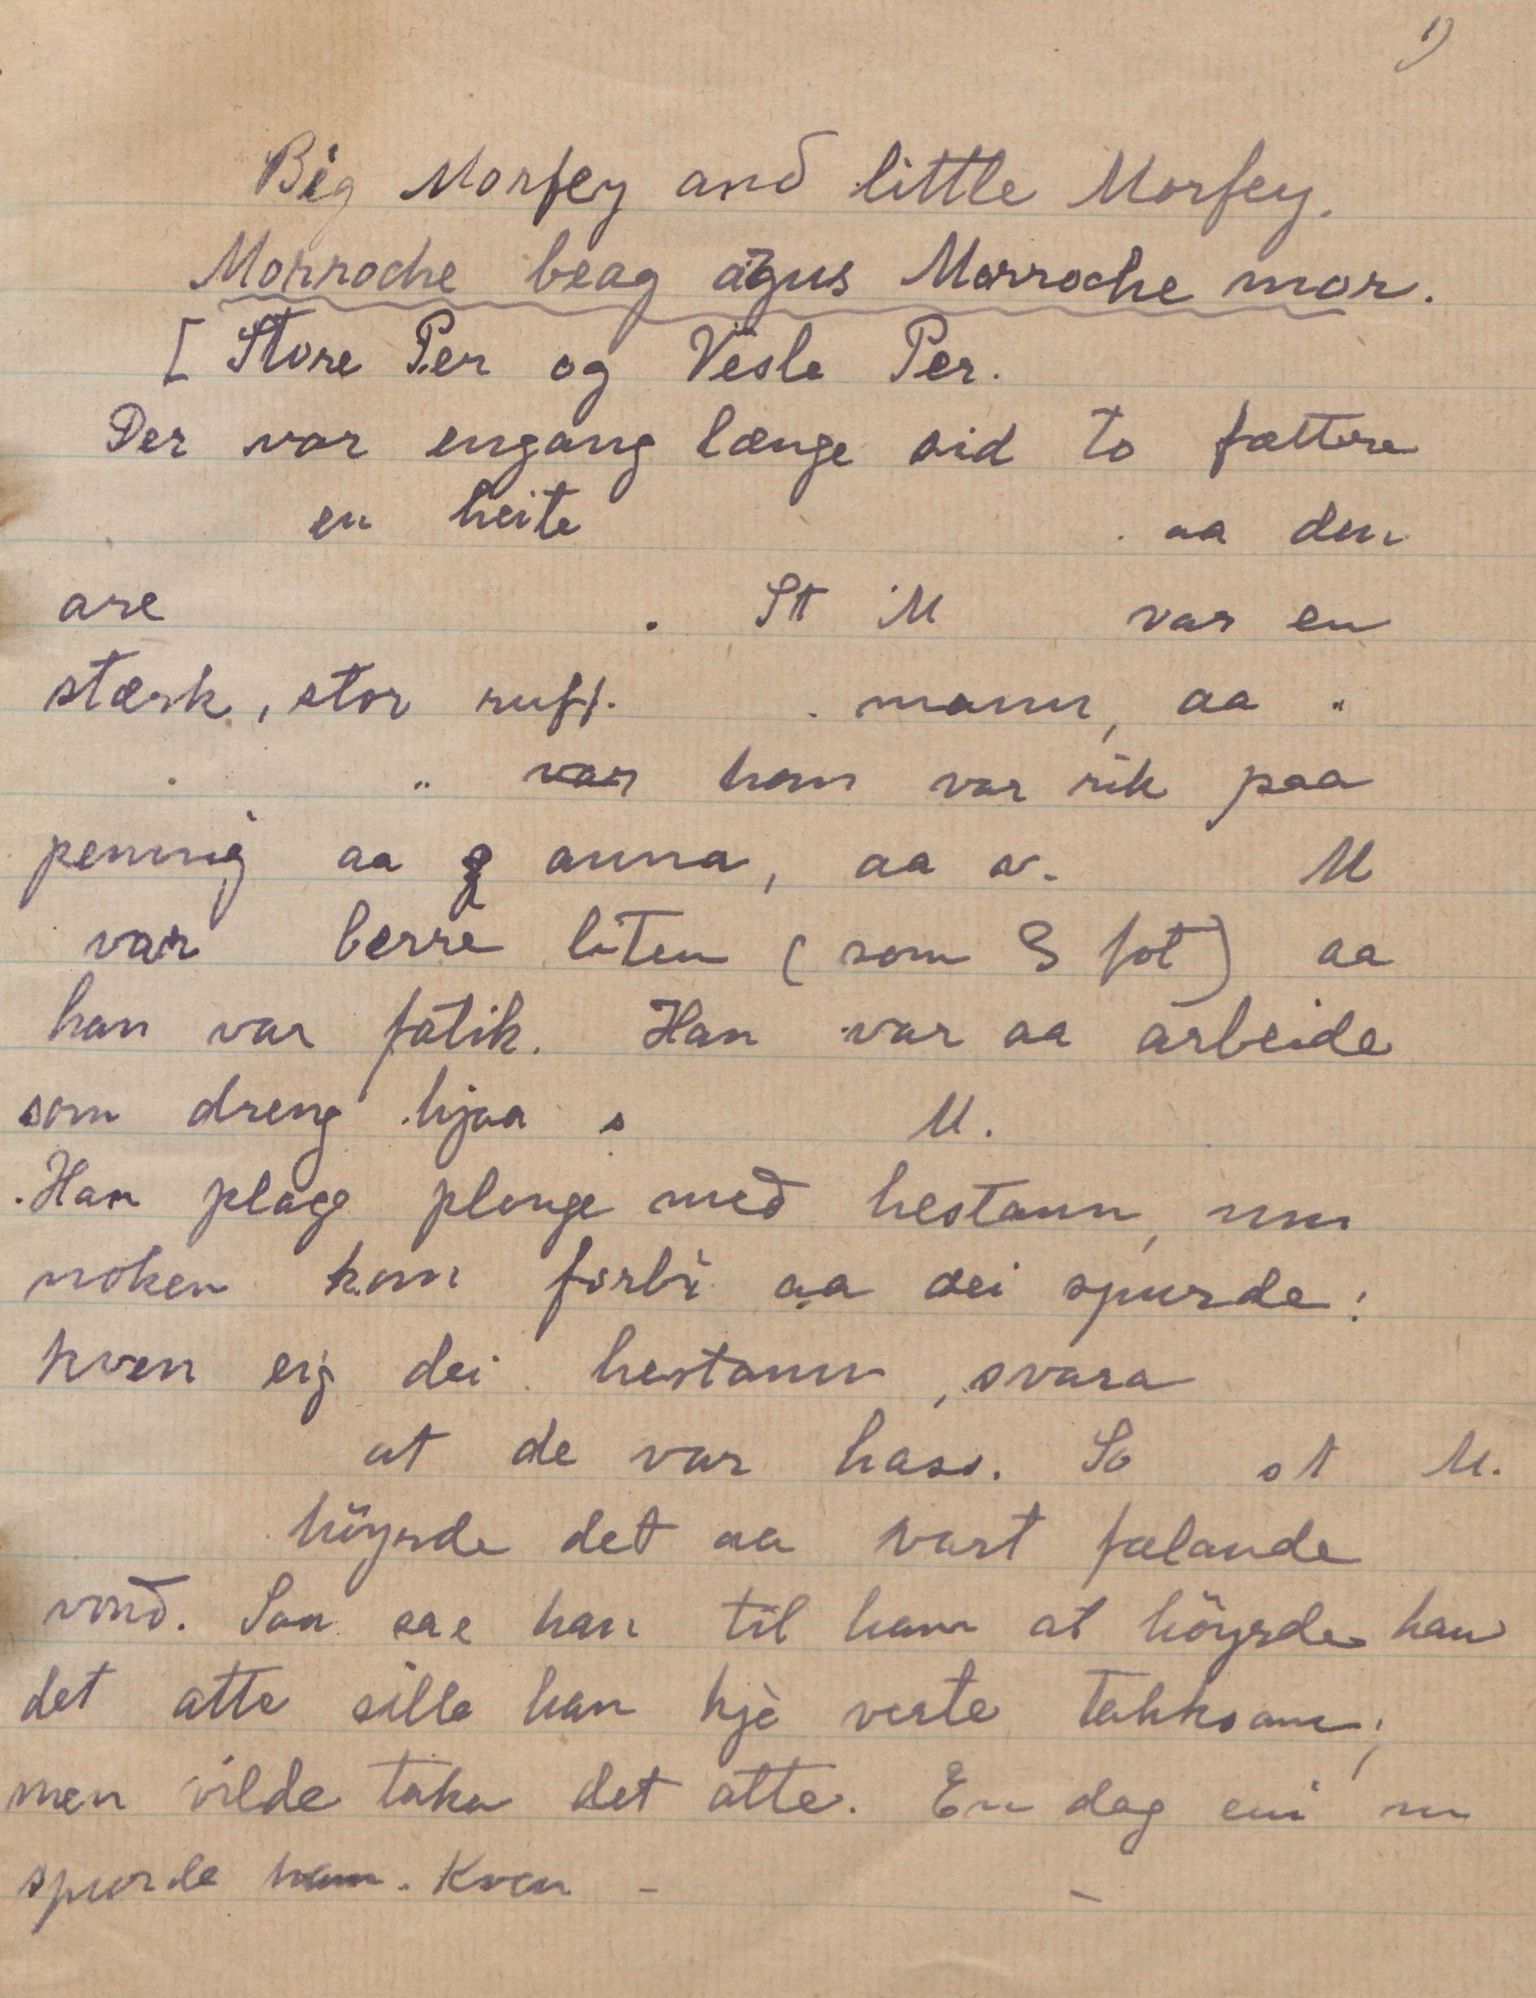 1)
Big Morfey and little Morfey.
Morroche beag agus Morroche mor.
[Store Per og Vesle Per.
Der var engang længe sid to fættere
en heite aa den
are . St M var en
stærk, stor ruff. mann, aa "
" var han var rik paa
penning aa anna, aa v. M
var berre liten (som 3 fot) aa
han var fatik. Han var aa arbeide
som dreng hjaa s M.
Han plagg plouge med hestann, um
noken kom forbi aa dei spurde:
kven eig dei hestann, svara
at de var hass. So st M.
höyrde det aa vart fælande
vond. Saa sae han til ham at höyrde han
det atte sille han kje verte takksam;
men vilde taka det atte. En dag eni m
spurde ham. Kven - -